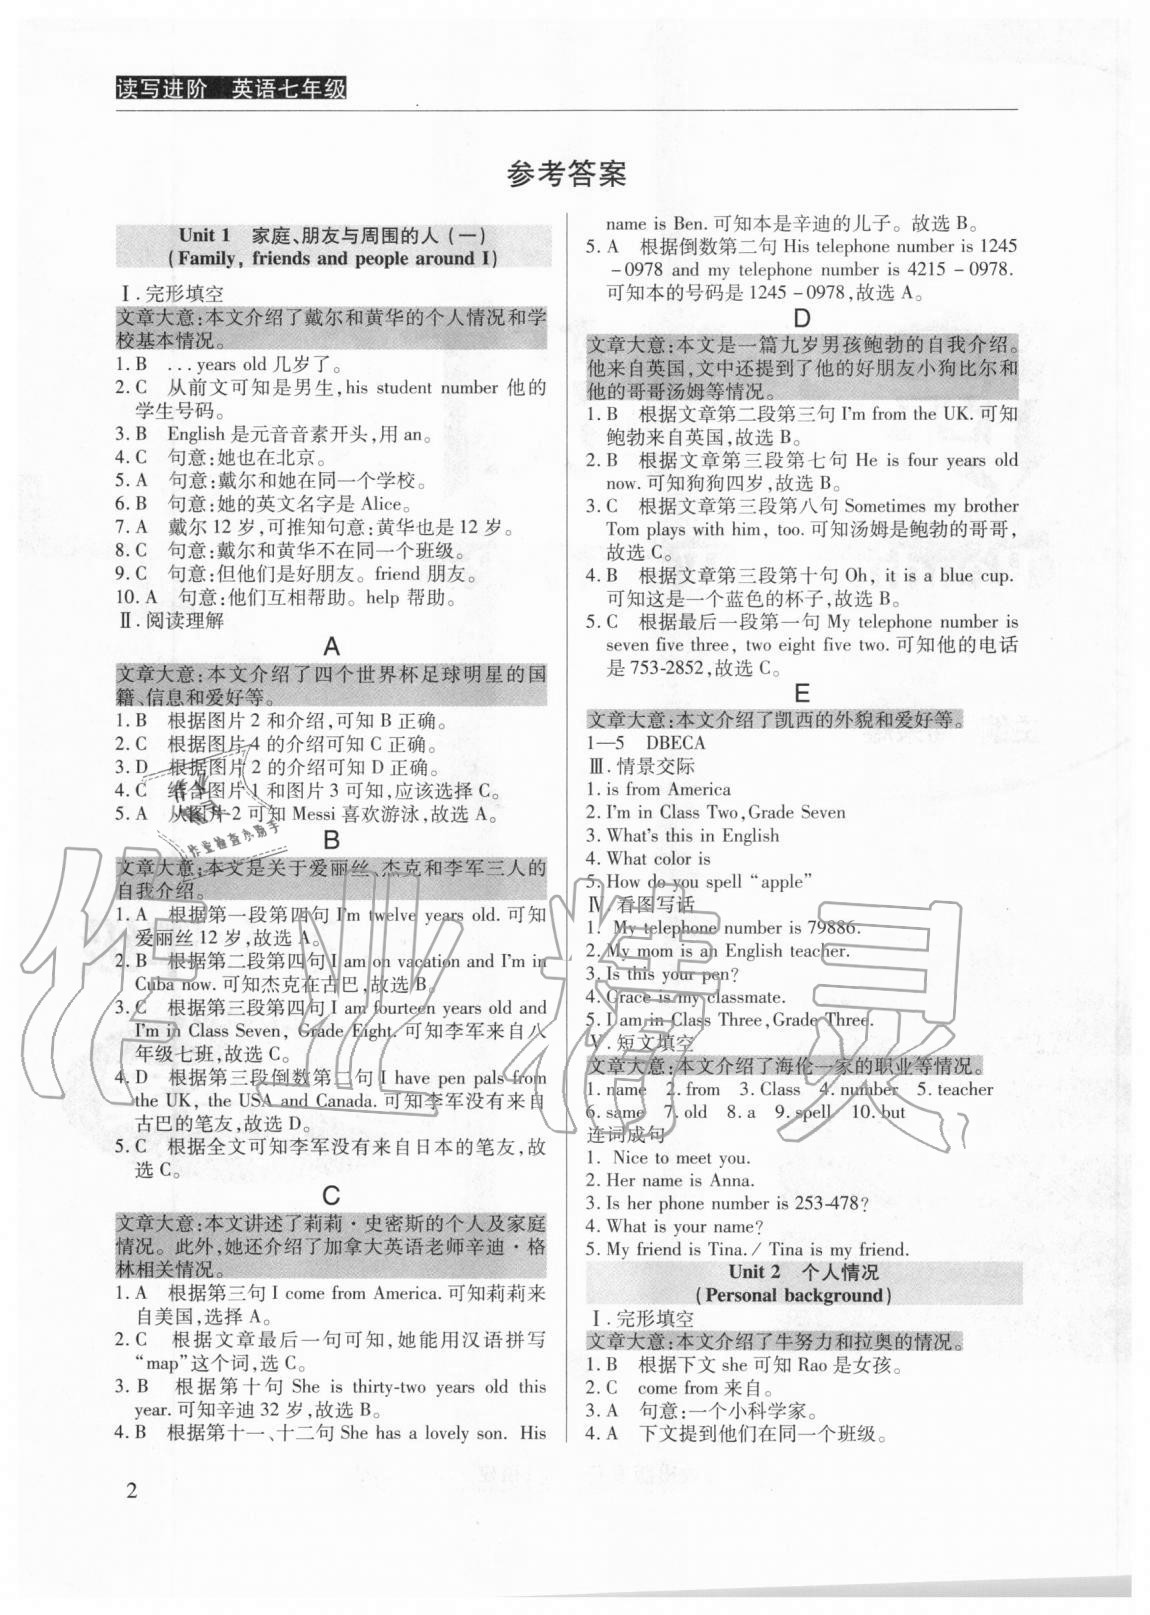 读写进阶　英语七年级
参考答案
Unit 1　家庭、朋友与周围的人(一)
(Family, friends and people around Ⅰ)
Ⅰ.完形填空
文章大意:本文介绍了戴尔和黄华的个人情况和学
校基本情况。
1. B　...years old 几岁了。
2. C　从前文可知是男生,his student number 他的
学生号码。
3. B　English 是元音音素开头,用 an。
4. C　句意:她也在北京。
5. A　句意:戴尔和她在同一个学校。
6. B　句意:她的英文名字是 Alice。
7. A　戴尔 12 岁,可推知句意:黄华也是 12 岁。
8. C　句意:戴尔和黄华不在同一个班级。
9. C　句意:但他们是好朋友。friend 朋友。
10. A　句意:他们互相帮助。help 帮助。
Ⅱ.阅读理解
A
文章大意:本文介绍了四个世界杯足球明星的国
籍、信息和爱好等。
1. B　根据图片 2 和介绍,可知 B 正确。
2. C　根据图片 4 的介绍可知 C 正确。
3. D　根据图片 2 的介绍可知 D 正确。
4. C　结合图片 1 和图片 3 可知,应该选择 C。
5. A　从图片 2 可知 Messi 喜欢游泳,故选 A。
B
文章大意:本文是关于爱丽丝、杰克和李军三人的
自我介绍。
1. A　根据第一段第四句 I'm twelve years old. 可知
爱丽丝 12 岁,故选 A。
2. B　根据第二段第四句 I am on vacation and I'm in
Cuba now. 可知杰克在古巴,故选 B。
3. C　根据第三段第四句 I am fourteen years old and
I'm in Class Seven, Grade Eight. 可知李军来自八
年级七班,故选 C。
4. D　根据第三段倒数第二句 I have pen pals from
the UK, the USA and Canada. 可知李军没有来自
古巴的笔友,故选 D。
5. C　根据全文可知李军没有来自日本的笔友,故
选 C。
C
文章大意:本文讲述了莉莉·史密斯的个人及家庭
情况。此外,她还介绍了加拿大英语老师辛迪·格
林相关情况。
1. A　根据第三句 I come from America. 可知莉莉来
自美国,选择 A。
2. C　根据文章最后一句可知,她能用汉语拼写
“map”这个词,选 C。
3. B　根据第十句 She is thirty-two years old this
year. 可知辛迪 32 岁,故选 B。
4. B　根据第十一、十二句 She has a lovely son. His
name is Ben. 可知本是辛迪的儿子。故选 B。
5. A　根据倒数第二句 His telephone number is 1245
-0978 and my telephone number is 4215-0978.
可知本的号码是 1245-0978,故选 A。
D
文章大意:本文是一篇九岁男孩鲍勃的自我介绍。
他来自英国,文中还提到了他的好朋友小狗比尔和
他的哥哥汤姆等情况。
1. B　根据文章第二段第三句 I'm from the UK. 可知
鲍勃来自英国,故选 B。
2. B　根据文章第三段第七句 He is four years old
now. 可知狗狗四岁,故选 B。
3. C　根据文章第三段第八句 Sometimes my brother
Tom plays with him, too. 可知汤姆是鲍勃的哥哥,
故选 C。
4. B　根据文章第三段第十句 Oh, it is a blue cup.
可知这是一个蓝色的杯子,故选 B。
5. C　根据最后一段第一句 My telephone number is
seven five three, two eight five two. 可知他的电话
是 753-2852,故选 C。
E
文章大意:本文介绍了凯西的外貌和爱好等。
1—5　DBECA
Ⅲ.情景交际
1. is from America
2. I'm in Class Two,Grade Seven
3. What's this in English
4. What color is
5. How do you spell “apple”
Ⅳ　看图写话
1. My telephone number is 79886.
2. My mom is an English teacher.
3. Is this your pen?
4. Grace is my classmate.
5. I am in Class Three,Grade Three.
Ⅴ.短文填空
文章大意:本文介绍了海伦一家的职业等情况。
1. name　2. from　3. Class　4. number　5. teacher
6. same　7. old　8. a　9. spell　10. but
连词成句
1. Nice to meet you.
2. Her name is Anna.
3. Is her phone number is 253-478?
4. What is your name?
5. My friend is Tina. / Tina is my friend.
Unit 2　个人情况
(Personal background)
Ⅰ.完形填空
文章大意:本文介绍了牛努力和拉奥的情况。
1. B　根据下文 she 可知 Rao 是女孩。
2. C　come from 来自。
3. A　句意:一个小科学家。
4. A　下文提到他们在同一个班级。
2
作业精灵
作业检查小助手